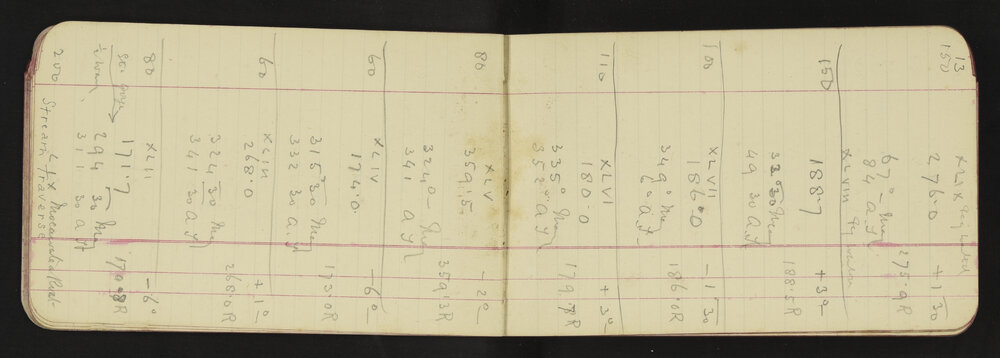 13
150 XLIX Rejected
276.0 +1 30
275.9R
67° — Mag
84 — a.y
XLVIII
150 188.7 +3°
188.5R
30 Mag
49 30 a.y
XLVII
100 186.0 -1 30
186.0R
349° Mag
6° a.y
XLVI
110 180.0 +3°
179.7R
335° Mag
352° a.y
XLV
80 359.5 -2°
359.3R
324° Mag
341 a.y
XLIV
60 174.0 -6°
173.0R
315 30 Mag
332 30 a.y
XLIII
60 268.0 +1°
268.0R
324 30 Mag
341 30 a.y
XLII
80 171.7 -6°
170.8R
294 30 Mag
311 30 a.y
200 Stream
Traverse